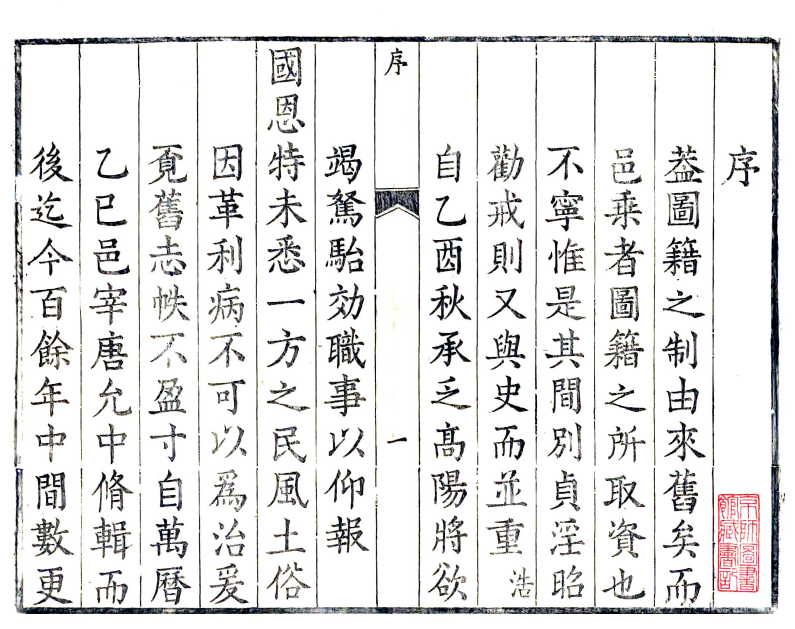 序
葢圖籍之制由來舊矣而
邑乗者圖籍之所取資也
不寧惟是其間别貞淫昭
勸戒則又與史而並重浩
自乙酉秋承乏髙陽將欲
序
一
竭駑駘効職事以仰報
國恩特未悉一方之民風土俗
因革利病不可以爲治爰
覔舊志帙不盈寸自萬曆
乙巳邑宰唐允中脩輯而
後迄今百餘年中間數更
京師圖書
館藏書記